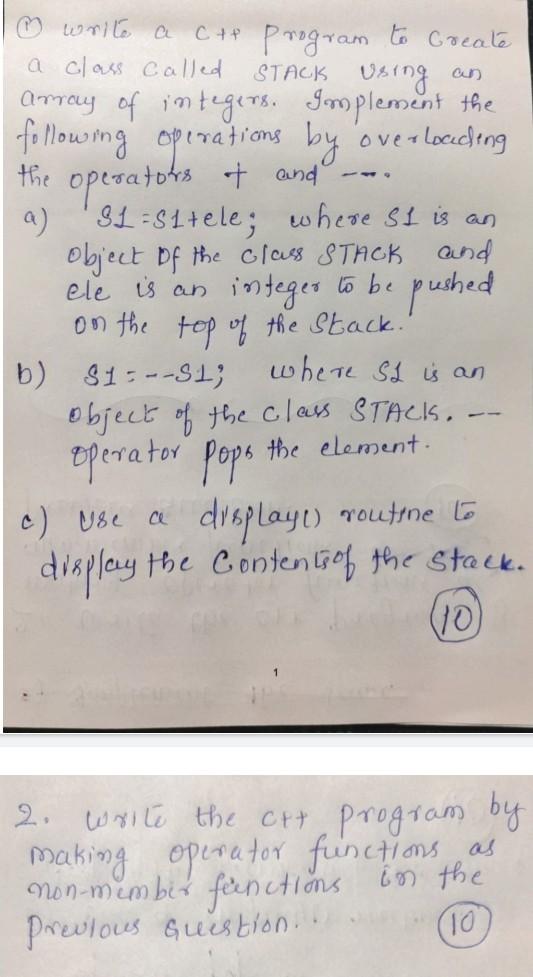 ① write a C++ program to Create
a class called STACK using an
array of integers. Implement the
following operations by overloading
the operators + and --.
a) S1=S1+ele; where S1 is an
object of the class STACK and
ele is an integer to be pushed
on the top of the Stack.
b) S1=--S1; where S1 is an
object of the class STACK. --
operator pops the element.
c) Use a display() routine to
display the Contents of the Stack.
10
1
2. write the C++ program by
making operator functions as
non-member functions in the
previous Question.
10